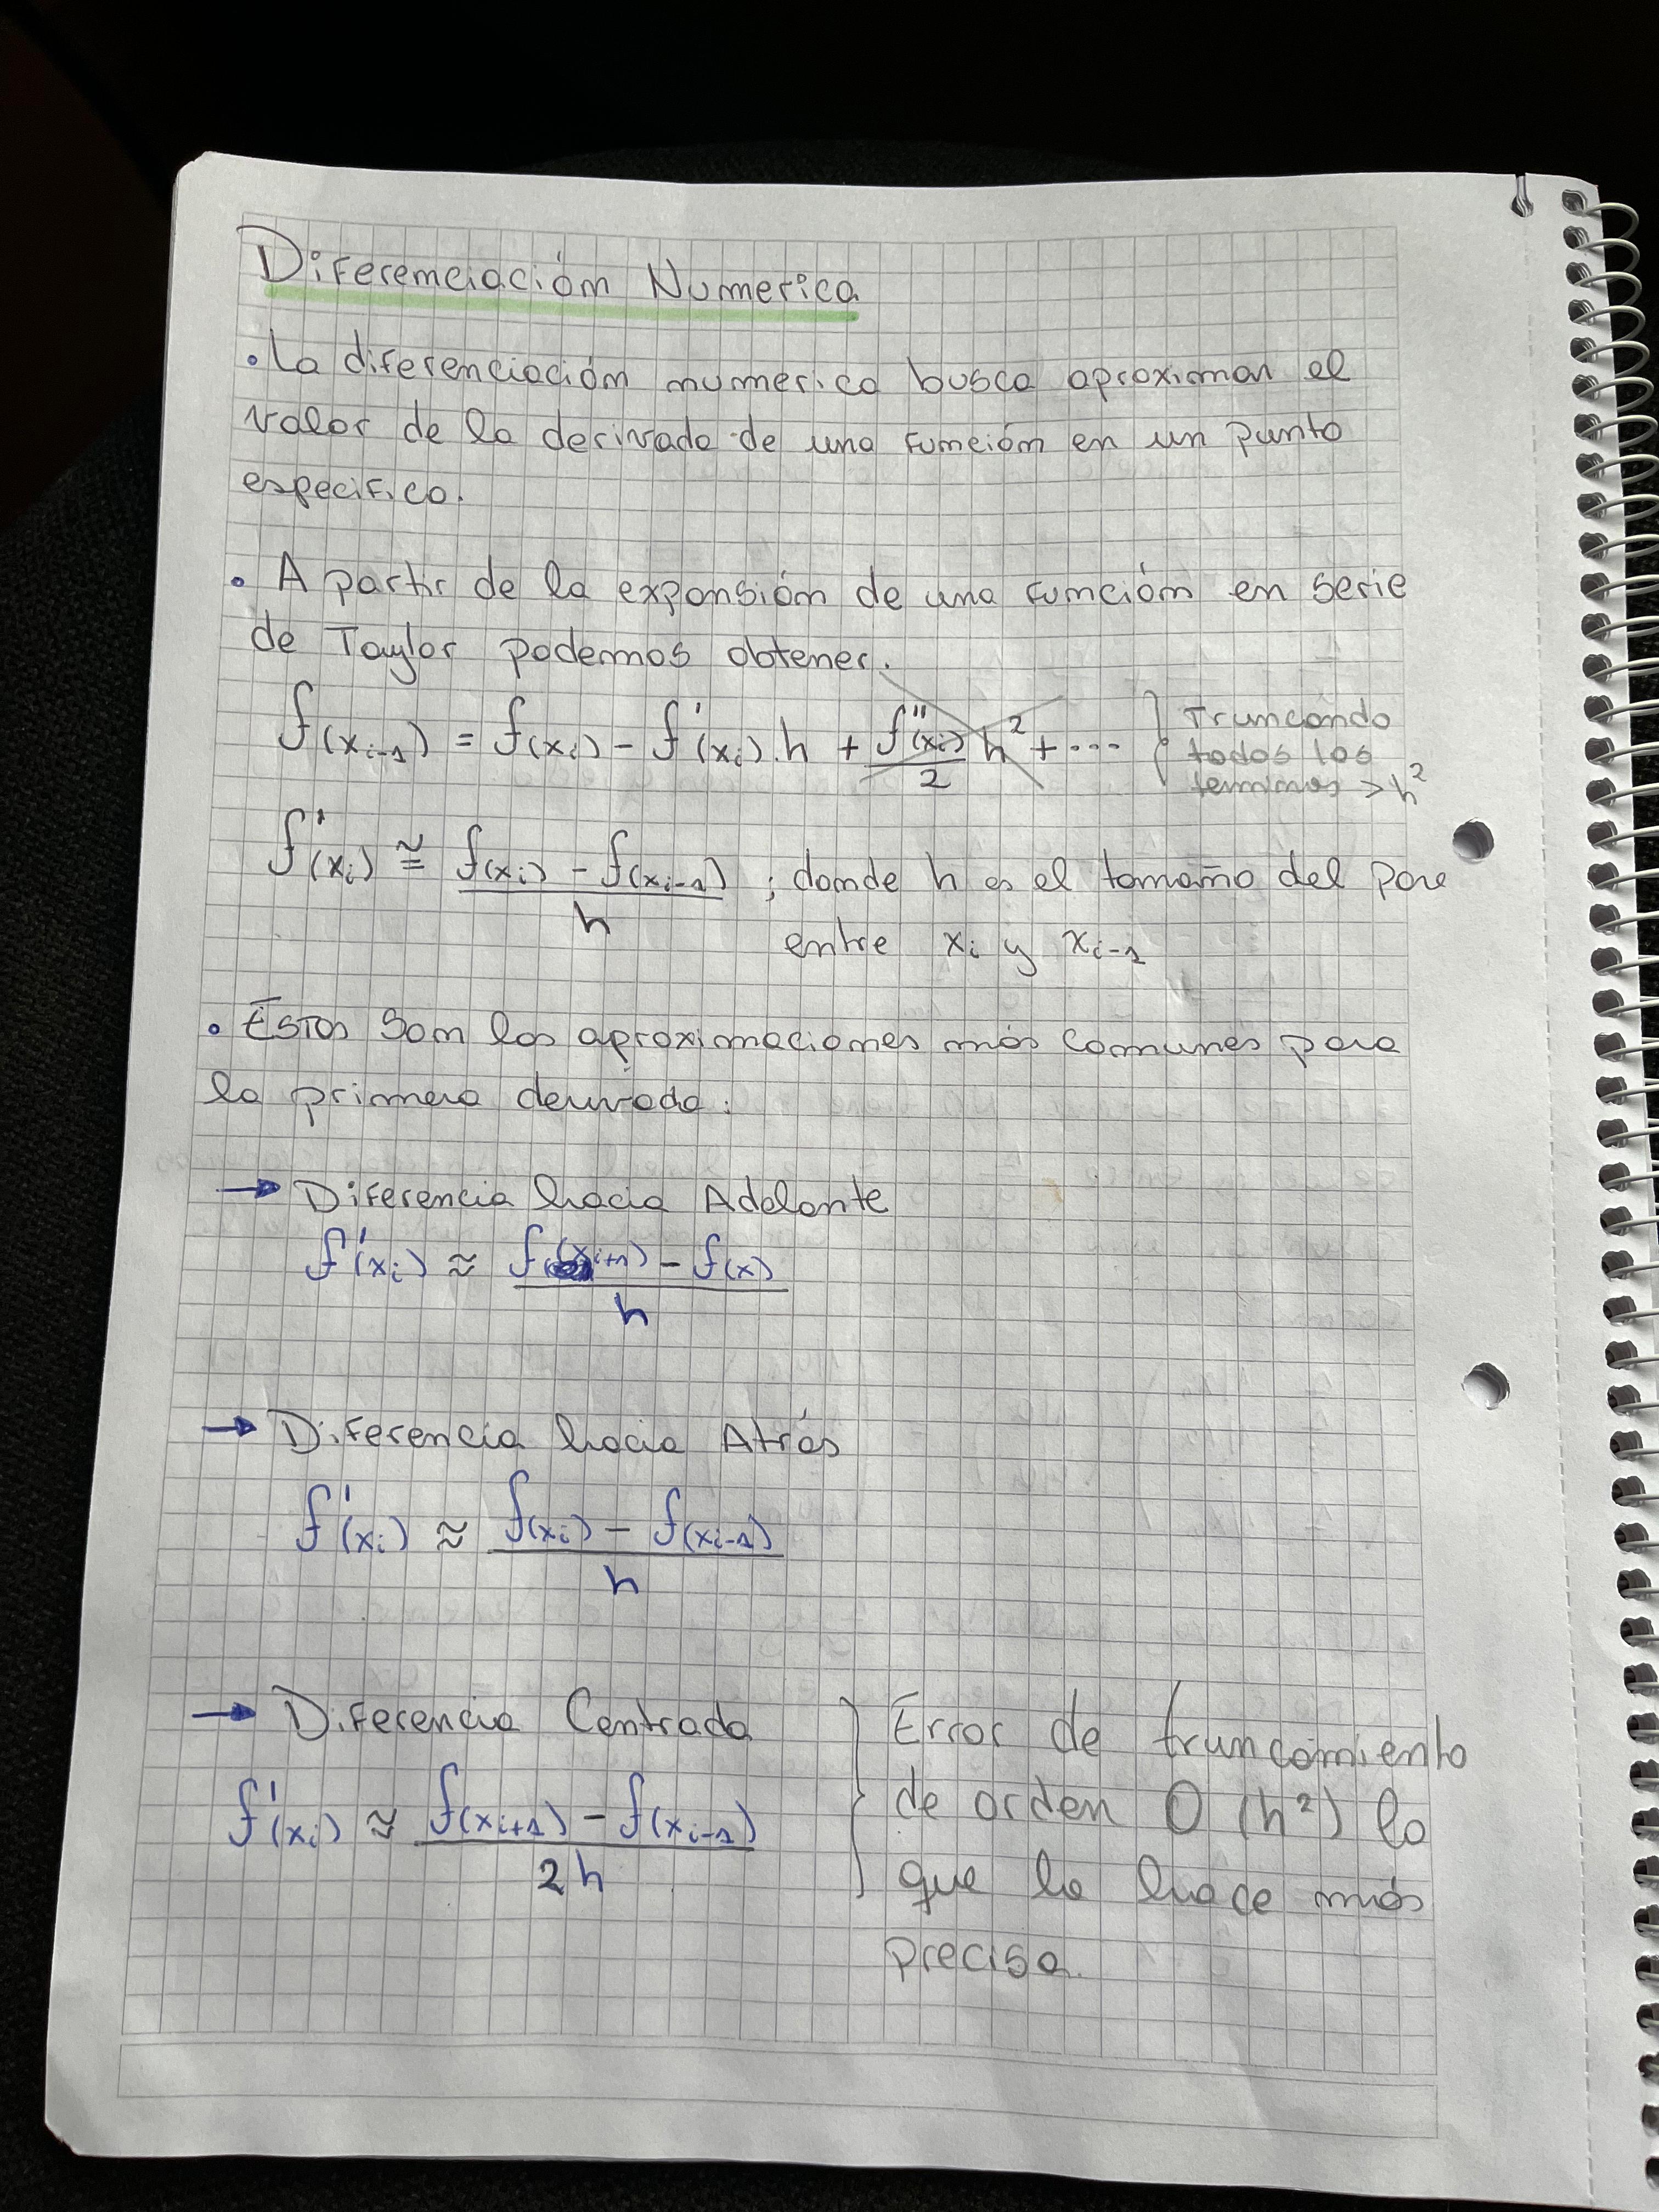 Diferenciación Numerica
• La diferenciación numerica busca aproximar el
valor de la derivada de una función en un punto
especifico.
• A partir de la expansión de una función en serie
de Taylor podemos obtener.
f(xᵢ₋₁) = f(xᵢ) - f'(xᵢ).h + f''(xᵢ)/2 h² + ... } Truncando
todos los
terminos > h²
f'(xᵢ) ≅ (f(xᵢ) - f(xᵢ₋₁))/h ; donde h es el tamaño del
entre xᵢ y xᵢ₋₁
• Estas son las aproximaciones más comunes para
la primera derivada:
→ Diferencia hacia Adelante
f'(xᵢ) ≈ (f(xᵢ₊₁) - f(x))/h
→ Diferencia hacia Atrás
f'(xᵢ) ≈ (f(xᵢ) - f(xᵢ₋₁))/h
→ Diferencia Centrada
f'(xᵢ) ≈ (f(xᵢ₊₁) - f(xᵢ₋₁))/2h
} Error de truncamiento
de orden O(h²) lo
que la hace más
precisa.